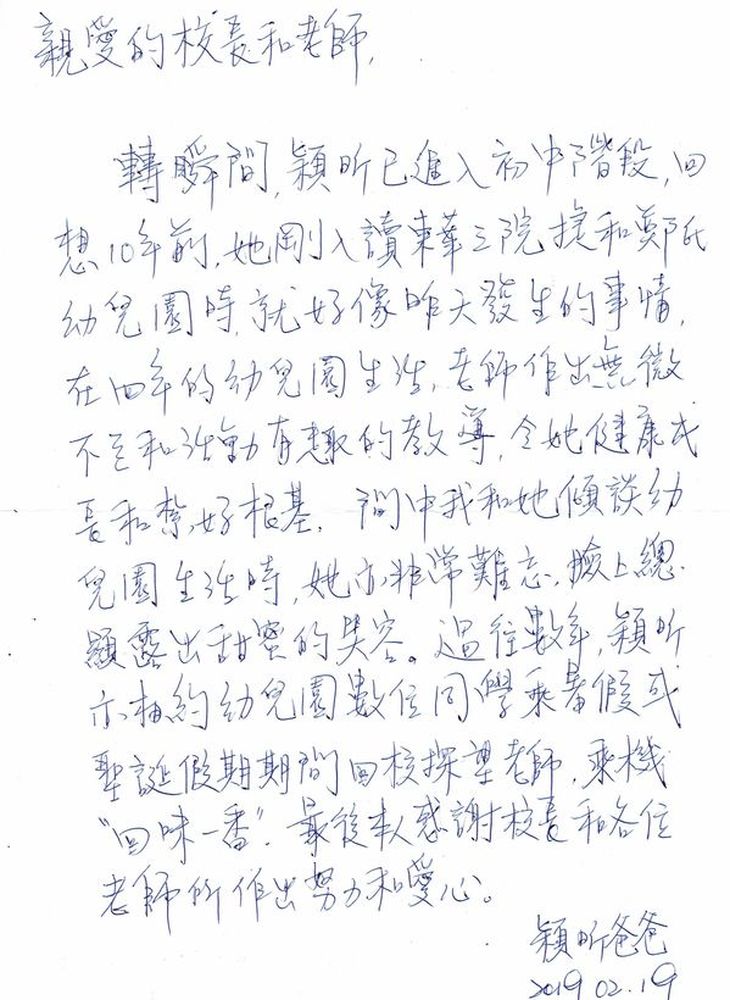 親愛的校長和老師,
轉瞬間,穎昕已進入初中階段,回
想10年前,她剛入讀東華三院捷和鄭氏
幼兒園時就好像昨天發生的事情,
在四年的幼兒園生活,老師作出無微
不至和活動有趣的教導,令她健康成
長和紮好根基. 間中我和她傾談幼
兒園生活時,她亦非常難忘,臉上總
顯露出甜蜜的笑容。過往數年,穎昕
亦相約幼兒園數位同學乘暑假或
聖誕假期期間回校探望老師,乘機
"回味一番". 最後本人感謝校長和各位
老師所作出努力和愛心。
穎昕爸爸
2019 02.19